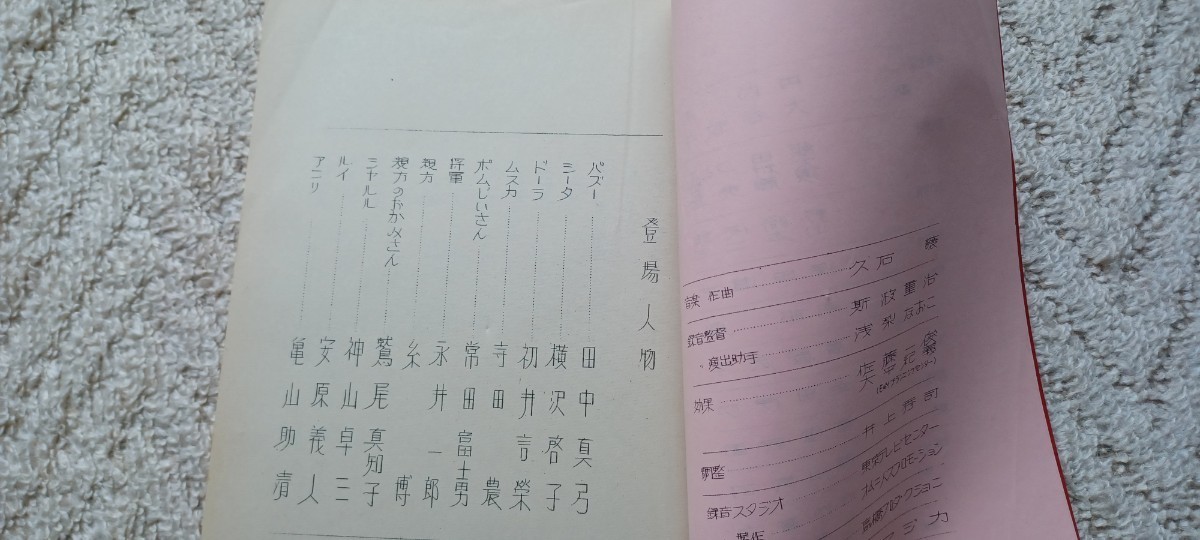 作曲……久石 譲
録音監督……斯波重治
〃 演出助手……浅梨なおこ
効果……佐藤一俊
調整……井上秀司
録音スタジオ……東京テレビセンター
オムニバスプロモーション
登場人物
パズー……田中真弓
シータ……横沢啓子
ドーラ……初井言榮
ムスカ……寺田農
ポムじいさん……常田富士男
将軍……永井一郎
親方……糸博
親方のおかみさん……鷲尾真知子
シャルル……神山卓三
ルイ……安原義人
アンリ……亀山助清